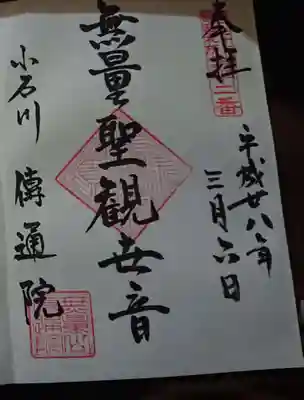 奉拝
平成廿八年
三月六日
無量聖観世音
小石川 傳通院